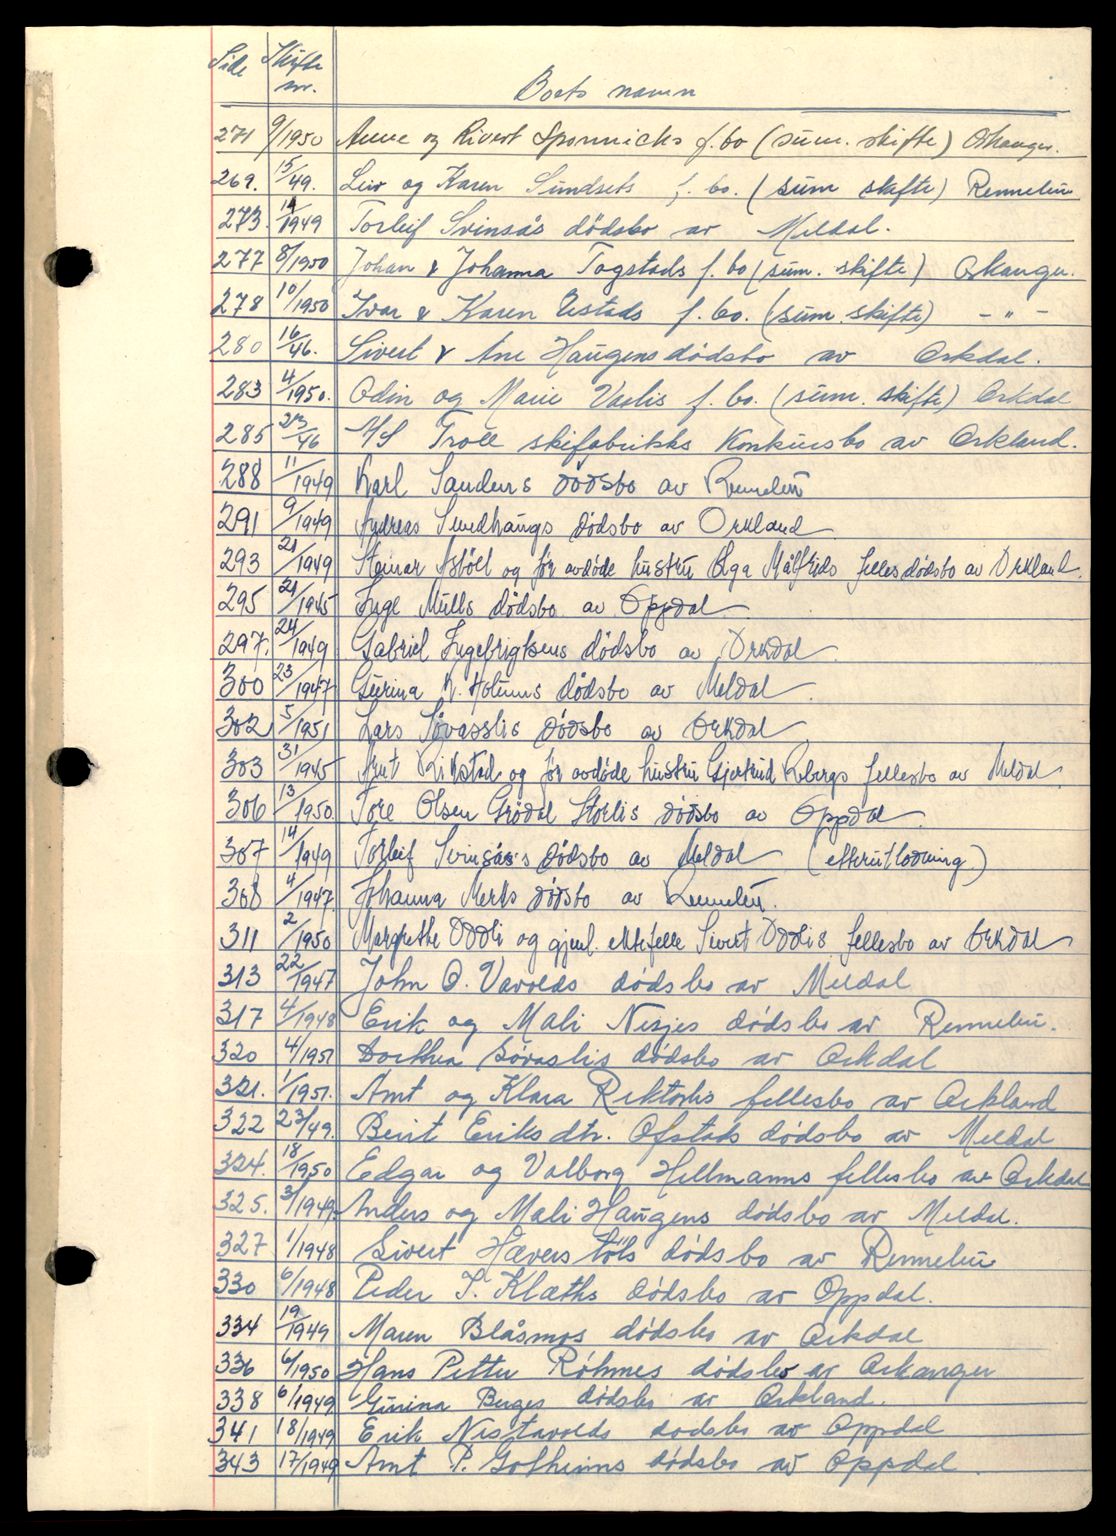 Side Skifte nr. Boets navn
271 9/1950 Anne og Sivert f. bo (sum. skifte) Orkanger.
269. 15/49. Leiv og Karen Sundsets f. bo. (sum skifte) Rennebu
273. 14/1949 Torleif Svinsås dödsbo av Meldal.
277 8/1950 Johan & Johanna Togstads f. bo (sum. skifte) Orkanger.
278 10/1950 Ivar & Karen f. bo. (sum. skifte) - " -
280 16/46. Sivert & Ane Haugens dödsbo av Orkdal.
283 4/1950. Odin og Marie Vaslis f. bo. (sum. skifte) Orkdal
285 23/46 A/S Troll skifabrikks konkursbo av Orkland.
288 11/1949 Karl Sanders dödsbo av Rennebu
291 9/1949 Andreas dödsbo av Orkland
293 21/1949 Steinar Asböll og før avdøde hustru Olga Målfrids fellesdødsbo av Orkland.
295 21/1945 Inge Mulls dödsbo av Oppdal
297. 24/1949 Gabriel Ingebrigtsens dödsbo av Orkdal
300 23/1947 Gurina K. Holums dödsbo av Meldal
302 5/1951 Lars Søvasslis dödsbo av Orkdal
303 31/1945 Arnt og før avdøde hustru Gjertrud fellesbo av Meldal
306 13/1950. Tore Olsen Grödal Storlis dödsbo av Oppdal
307 14/1949 Torleif Svinsås's dödsbo av Meldal (efterutlodning)
308 4/1947. Johanna Merks dödsbo av Rennebu.
311 2/1950 Margrethe Oddli og gjenl. ektefelle Sivert Oddlis fellesbo av Orkdal
313 22/1947 John O. Vavolds dödsbo av Meldal
317 4/1948 Erik og Mali Nesjes dödsbo av Rennebu.
320 4/1951 Dorthea Søvaslis dödsbo av Orkdal
321. 1/1951. Arnt og Klara fellesbo av Orkland
322 23/49. Berit Eriks dtr. Ofstads dödsbo av Meldal
324. 18/1950 Edgar og Valborg Hellmanns fellesbo av Orkdal
325. 3/1949. Anders og Mali Haugens dödsbo av Meldal.
327 1/1948 Sivert Hæverstöls dödsbo av Rennebu
330 6/1948 Peder I. Klæths dödsbo av Oppdal.
334 19/1949 Maren Blåsmos dödsbo av Orkdal
336 6/1950 Hans Petter Röhmes dödsbo av Orkanger
338 6/1949 Gurina Berges dödsbo av Orkland.
341 18/1949 Erik Nestavolds dödsbo av Oppdal
343 17/1949 Arnt P. Gotheims dödsbo av Oppdal